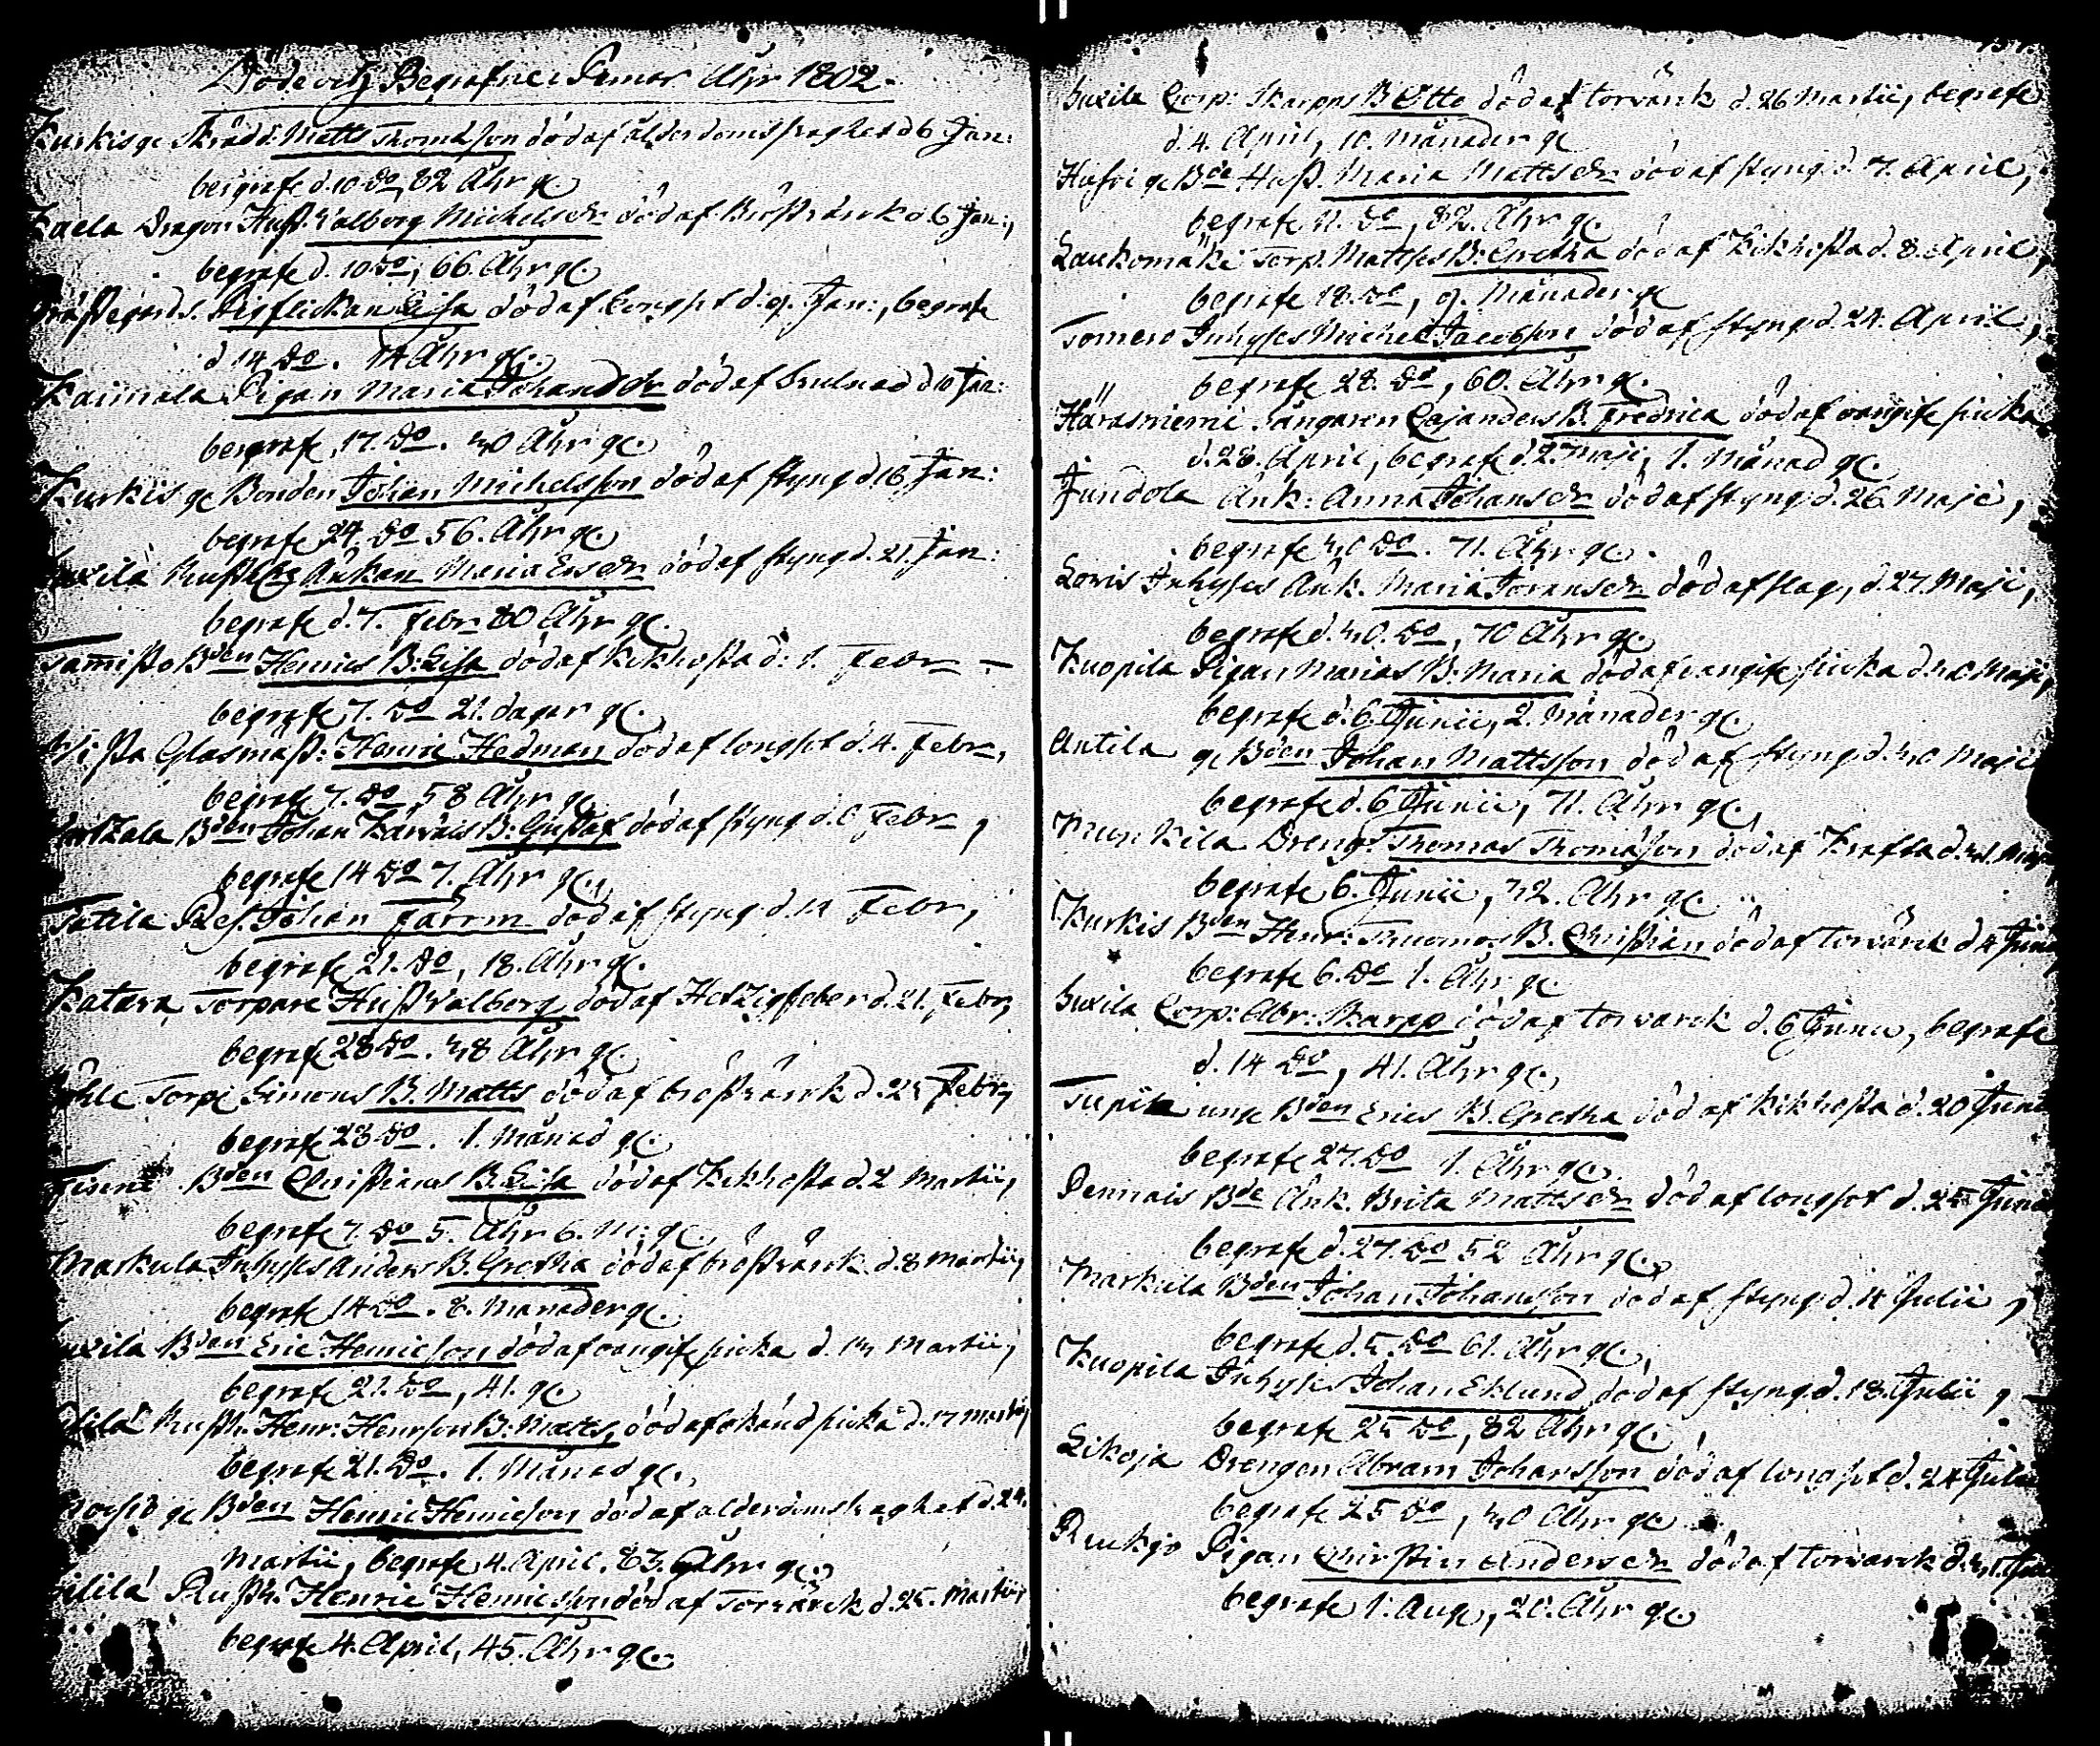 Döde och Begrafne i Pemar Åhr 1802.
Kurkis gl Skrädd: Matts Thomæsson död af ålderdoms svaghet d 6 Jan:
begrafe d. 10 do, 82 Åhr gl.
Kaela Dragon Hust. Walborg Michelsdr död af Bröstvärck d 6 Jan:,
begrafe d. 10 do, 66. Åhr gl.
Prästegårds. Pigflickan Lisa död af Longsot d. 9. Jan:, begrafe
d 14 do. 14 Åhr gl.
Kaimala Pigan Maria Johansdr död af d 10 Jan:
begrafe, 17. do. 30 Åhr gl.
Kurkis gl Bonden Johan Michelsson död af styng d 16 Jan:
begrafe 24. do 56. Åhr gl.
Rusth. Änkan Maria Ersdr död af styng d. 21. Jan:
begrafe d. 7. Febr 80 Åhr gl.
Tammisto Bden Henrics B: Lisa död af Kikhosta d: 1. Febr
begrafe 7. do 21. dagar gl.
Glasmäst: Henric Hedman död af longsot d. 4. Febr,
begrafe 7. do 58 Åhr gl.
Bden Johan B: Gustaf död af styng d. 6 Febr,
begrafe 14 do 7. Åhr gl.
Johan Farrm död af styng d. 14 Febr,
begrafe 21. do, 18. Åhr gl.
Katara Torpare Hust Walborg död af Hetzigfeber d. 21. Febr,
begrafe 28 do. 38 Åhr gl.
Torp. Simons B. Matts död af bröstvärck d. 25 Febr,
begrafe 28 do. 1. Månad gl.
Bden Christians B. Lisa död af Kikhosta d. 2 Martii,
begrafe 7. do 5. Åhr 6. M: gl.
Markula Inhyses Anders B. Gretha död af bröstvärck d. 8 Martii,
begrafe 14 do. 8. Månader gl.
Bden Eric Henricsson död af oangife siuka d. 13 Martii,
begrafe 21. do, 41. gl.
Rusth. Henr: Henrsson B: Matts, död af okänd siuka d. 17 Martii,
begrafe 21. do. 1. Månad gl.
gl Bden Henric Henricsson död af alderdoms svaghet d. 24.
Martii, begrafe 4. April. 83. Åhr gl.
Rusth. Henric Henricsson död af Torrvärck d. 25. Martii
begrafe 4. April, 45. Åhr gl.
Corp: Skarpps B Otto död af torrvärck d. 26 Martii, begrafe
d. 4. April, 10. Månader gl
gl Bde Hust. Maria Mattsdr död af styng d. 7. April,
begrafe 11. do, 82. Åhr gl.
Laukomäki Torp. Mattses B: Gretha död af Kikhosta d. 8. April,
begrafe 18. do, 9. Månader gl
Inhyses Michel Jacobsson död af styng d. 24. April,
begrafe 28. do, 60. Åhr gl.
Härasniemi Sångaren Cajanders B. Fredrica död af oangife siuka
d. 28. April, begraf d. 2. Maji, 1. Månad gl.
Jundola Änk: Anna Johansdr död af styng d. 26 Maji,
begrafe 30 do. 71. Åhr gl.
Loris Inhyses Änk. Maria död af slag, d. 27. Maji,
begrafe d. 30. do, 70 Åhr gl.
Kuopila Pigan Marias B: Maria död af oangife siuka d. 30 Maji,
begrafe d. 6. Junii, 2. Månader gl.
Antila gl Bden Johan Mattsson död af styng d. 30 Maji
begrafe d. 6 Junii, 71. Åhr gl.
Munkila Dreng: Thomas Thomæsson död af Krafta d. 31. Maji
begrafe 6. Junii, 32. Åhr gl.
Kurkis Bden Henr: B. Christian död af torrvärck d 4 Junii
begrafe 6. do 1. Åhr gl.
Corp: Abr: Skarpp död af torrvärck d. 6 Junii, begrafe
d. 14 do, 41. Åhr gl.
unge Bden Erics B. Gretha död af Kikhosta d. 20 Junii
begrafe 27. do 1. Åhr gl.
Bde Änk. Brita Mattsdr död af longsot d. 25 Junii
begrafe d. 27. do 52 Åhr gl.
Markula Bden Johan Johansson död af styng d. 4 Julii,
begrafe d. 5. do 61. Åhr gl.
Kuopila Inhyses Johan Eklund död af styng d. 18. Julii,
begrafe 25 do, 82 Åhr gl.
Likoja Drengen Abram Johansson död af longsot d. 24 Julii
begrafe 25 do, 30 Åhr gl
Ruukjo Pigan Christin Andersdr död af torrvärck d. 31. Julii
begrafe 1. Aug, 20. Åhr gl